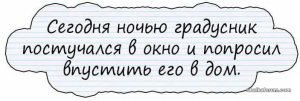 Сегодня ночью градусник
постучался в окно и попросил
впустить его в дом.